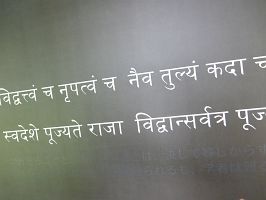 विद्वत्त्वं च नृपत्वं च नैव तुल्यं कदा च
स्वदेशे पूज्यते राजा विद्वान्सर्वत्र पूज